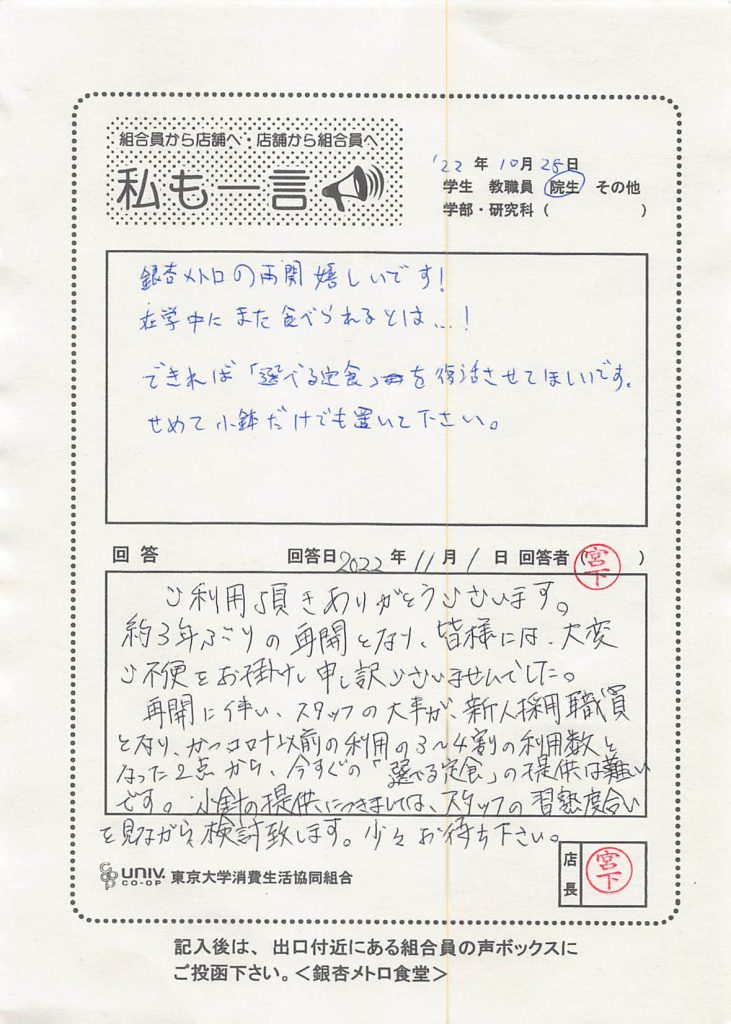 組合員から店舗へ・店舗から組合員へ
私も一言
'22年10月25日
学生 教職員 院生 その他
学部・研究科（ ）
銀杏メトロの再開嬉しいです！
在学中にまた食べられるとは…！
できれば「選べる定食」を復活させてほしいです。
せめて小鉢だけでも置いて下さい。
回答 回答日2022年11月1日 回答者（宮下）
ご利用頂きありがとうございます。
約3年ぶりの再開となり、皆様には、大変
ご不便をお掛けし申し訳ございませんでした。
再開に伴い、スタッフの大半が、新人採用職員
となり、かつコロナ以前の利用の3〜4割の利用数と
なった2点から、今すぐの「選べる定食」の提供は難しい
です。小鉢の提供につきましては、スタッフの習熟度合い
を見ながら検討致します。少々お待ち下さい。
UNIV. CO-OP 東京大学消費生活協同組合
店長 宮下
記入後は、出口付近にある組合員の声ボックスに
ご投函下さい。＜銀杏メトロ食堂＞